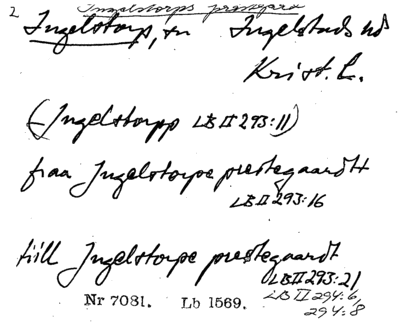 2 Ingelstorps prestgård
Ingelstorp, sn Ingelstads hd
Krist. L.
(Ingelstorpp LB II 293:11)
fraa Ingelstorpe prestegaardtt
LB II 293:16
till Ingelstorpe prestegaardt
LB II 293:21
Nr 7081. Lb 1569. LB II 294:6,
294:8